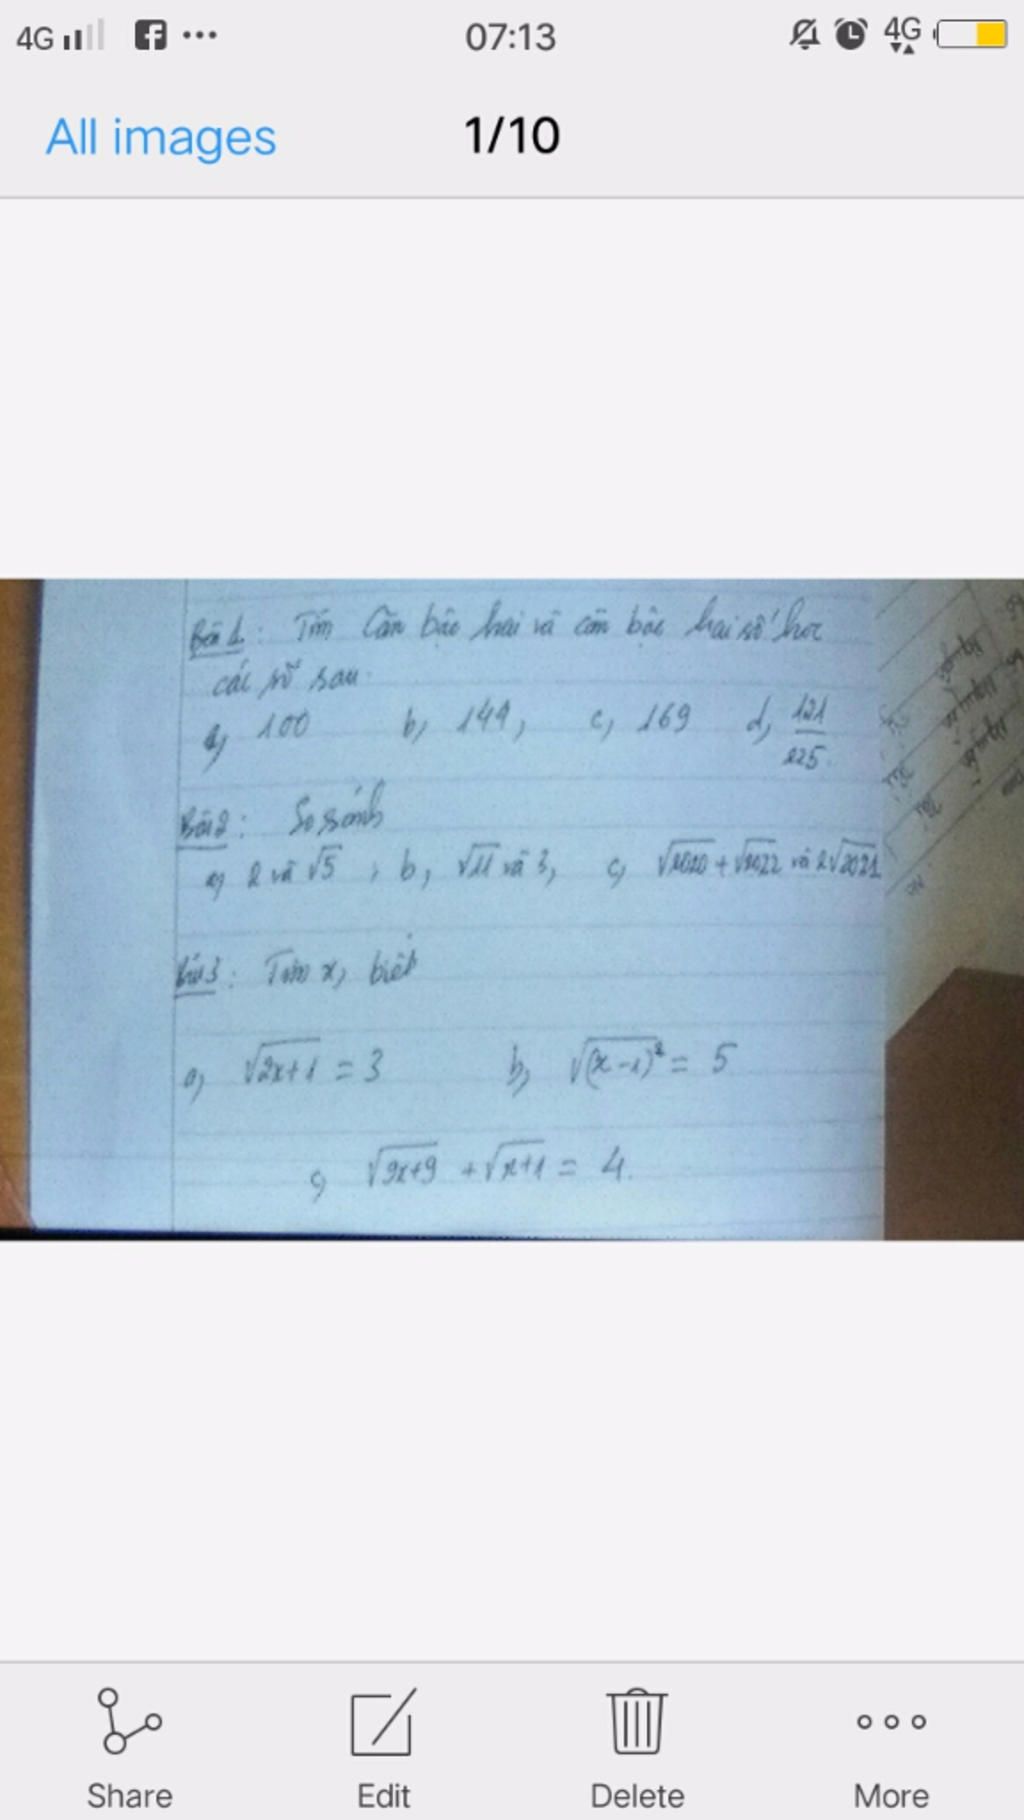 4G 07:13 4G
All images 1/10
Bài 1: Tìm Căn bậc hai và căn bậc hai số học
các số sau.
a, 100 b, 144, c, 169 d, 121/225.
Bài 2: So sánh
a, 2 và √5 ; b, √11 và 3, c, √2020 + √2022 và 2√2021
Bài 3: Tìm x, biết
a, √2x+1 = 3 b, √(x-1)² = 5
c, √9x+9 + √x+1 = 4.
Share Edit Delete More